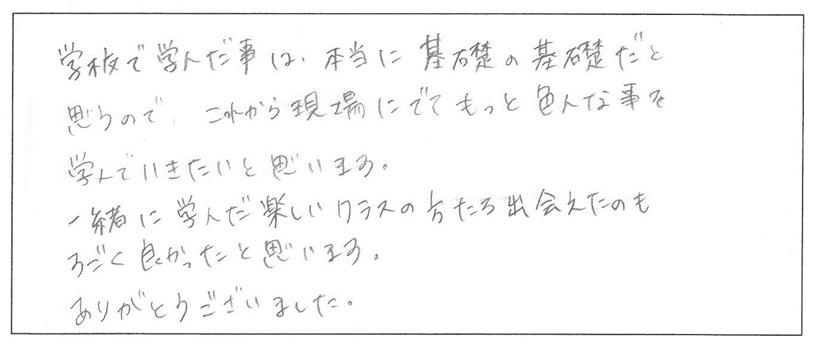 学校で学んだ事は、本当に基礎の基礎だと
思うので、これから現場にでてもっと色んな事を
学んでいきたいと思います。
一緒に学んだ楽しいクラスの方たち出会えたのも
すごく良かったと思います。
ありがとうございました。